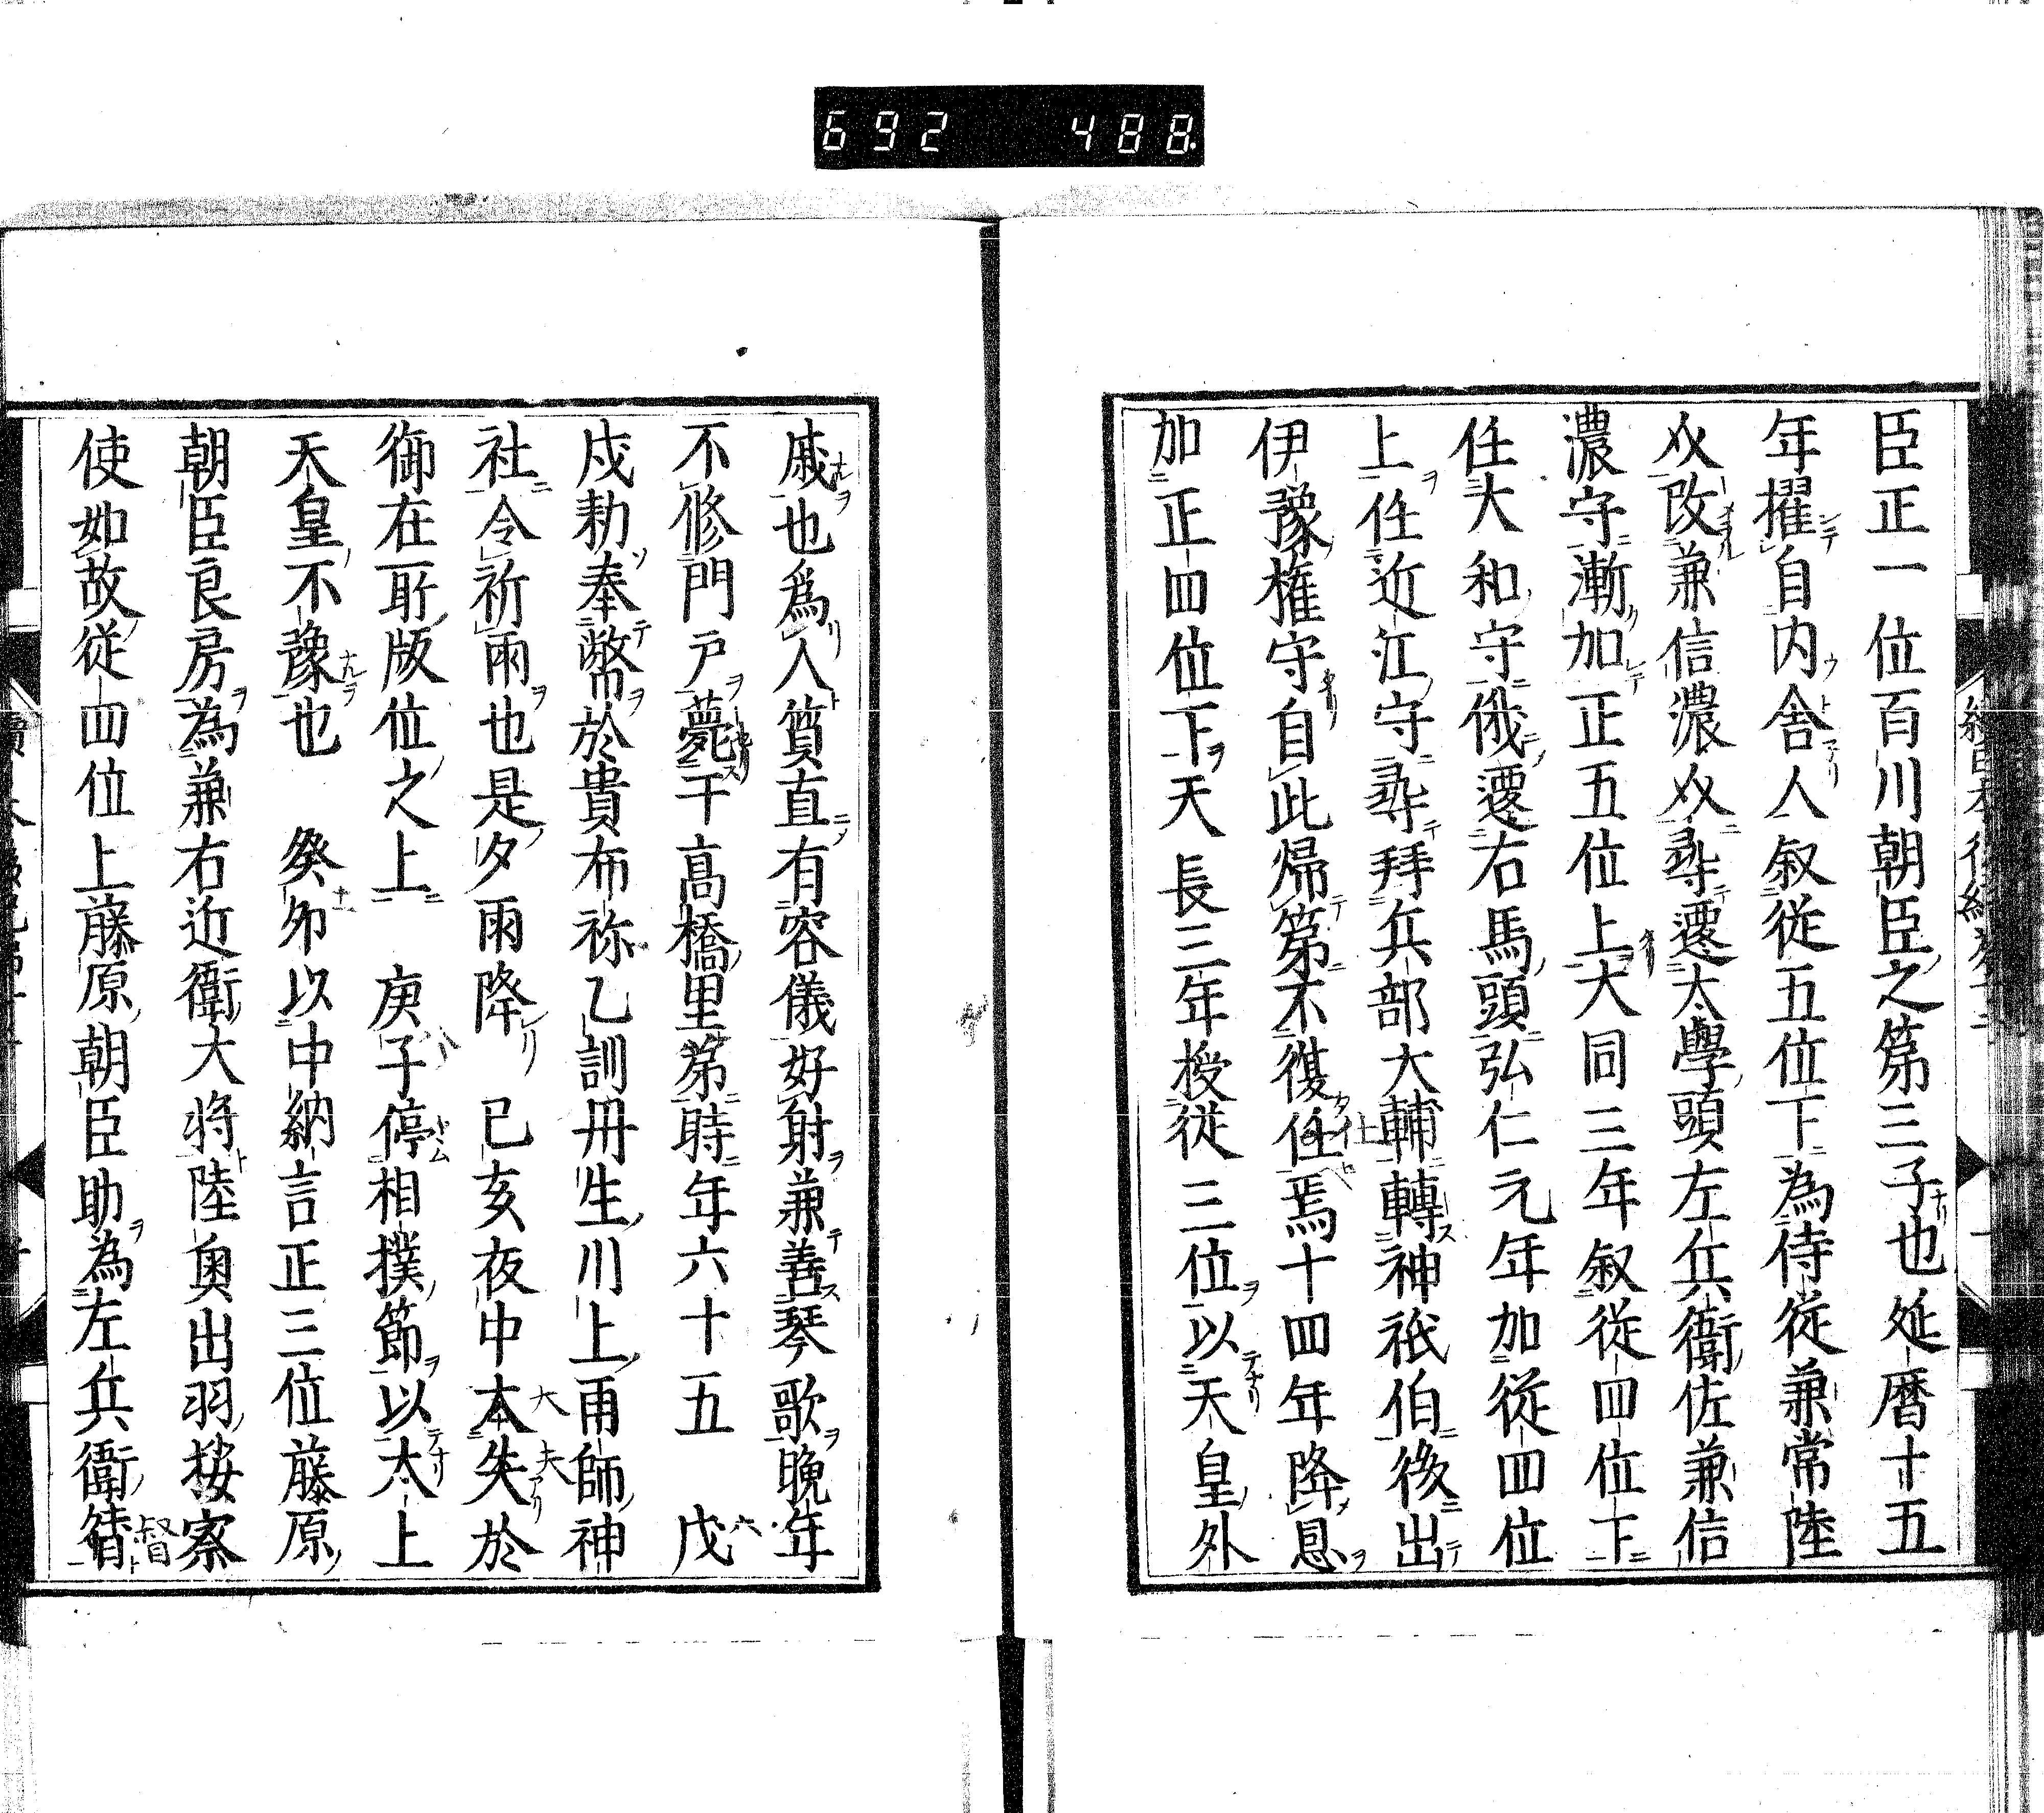 692 488
臣正一位百川朝臣之第三子也延暦十五
年擢自内舎人叙従五位下為侍従兼常陸
㕝改兼信濃㕝尋遷大學頭左兵衛佐兼信
濃守漸加正五位上大同三年叙従四位下
任大和守俄遷右馬頭弘仁元年加従四位
上任近江守尋拜兵部大輔轉神祇伯後出
伊豫権守自此帰第不復任焉十四年降恩
加正四位下天長三年授従三位以天皇外
戚也為人質直有容儀好射兼善琴歌晩年
不修門戸薨于高橋里第時年六十五 戊
戌勅奉幣於貴布祢乙訓丹生川上雨師神
社令祈雨也是夕雨降 已亥夜中本失於
御在所版位之上 庚子停相撲節以太上
天皇不豫也 癸卯以中納言正三位藤原
朝臣良房為兼右近衛大将陸奥出羽按察
使如故従四位上藤原朝臣助為左兵衛督